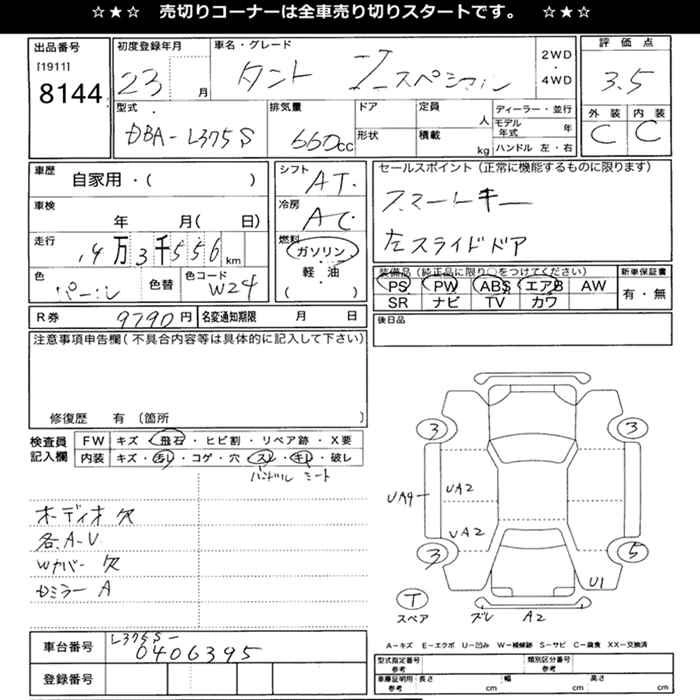 ☆★☆ 売切りコーナーは全車売り切りスタートです。 ☆★☆
出品番号
[1911]
8144
初度登録年月
23 月
車名・グレード
タント Xスペシャル
2WD
・
4WD
評価点
3.5
外装 内装
C C
型式
DBA-L375S
排気量
660cc
ドア
形状
定員
人
積載
kg
ディーラー・並行
モデル年式 年
ハンドル 左・右
車歴
自家用・( )
車検
年 月( 日)
走行
.4万3千556km
色
パール
色替
色コード
W24
シフト
AT.
冷房
AC
燃料
ガソリン
・
軽油
( )
セールスポイント(正常に機能するものに限ります)
スマートキー
左スライドドア
装備品(純正品に限り○をつけてください)
PS PW ABS エアB AW
SR ナビ TV カワ
新車保証書
有・無
R券 9790円
名変通知期限 月 日
後日品
注意事項申告欄(不具合内容等は具体的に記入して下さい)
修復歴 有(箇所 )
検査員
記入欄
FW キズ・飛石・ヒビ割・リペア跡・X要
内装 キズ・汚レ・コゲ・穴・スレ・キレ・破レ
ハンドル シート
オーディオ欠
各A-U
Wカバー欠
Dミラー A
3 3
UA9 UA2
UA2
3 5
U1
T
スペア
ズレ A2
A-キズ E-エクボ U-凹み W-補修跡 S-サビ C-腐食 XX-交換済
車台番号
L375S-
0406395
登録番号
型式指定番号
参考
類別区分番号
参考
車庫証明用
参考
長さ cm
幅 cm
高さ cm